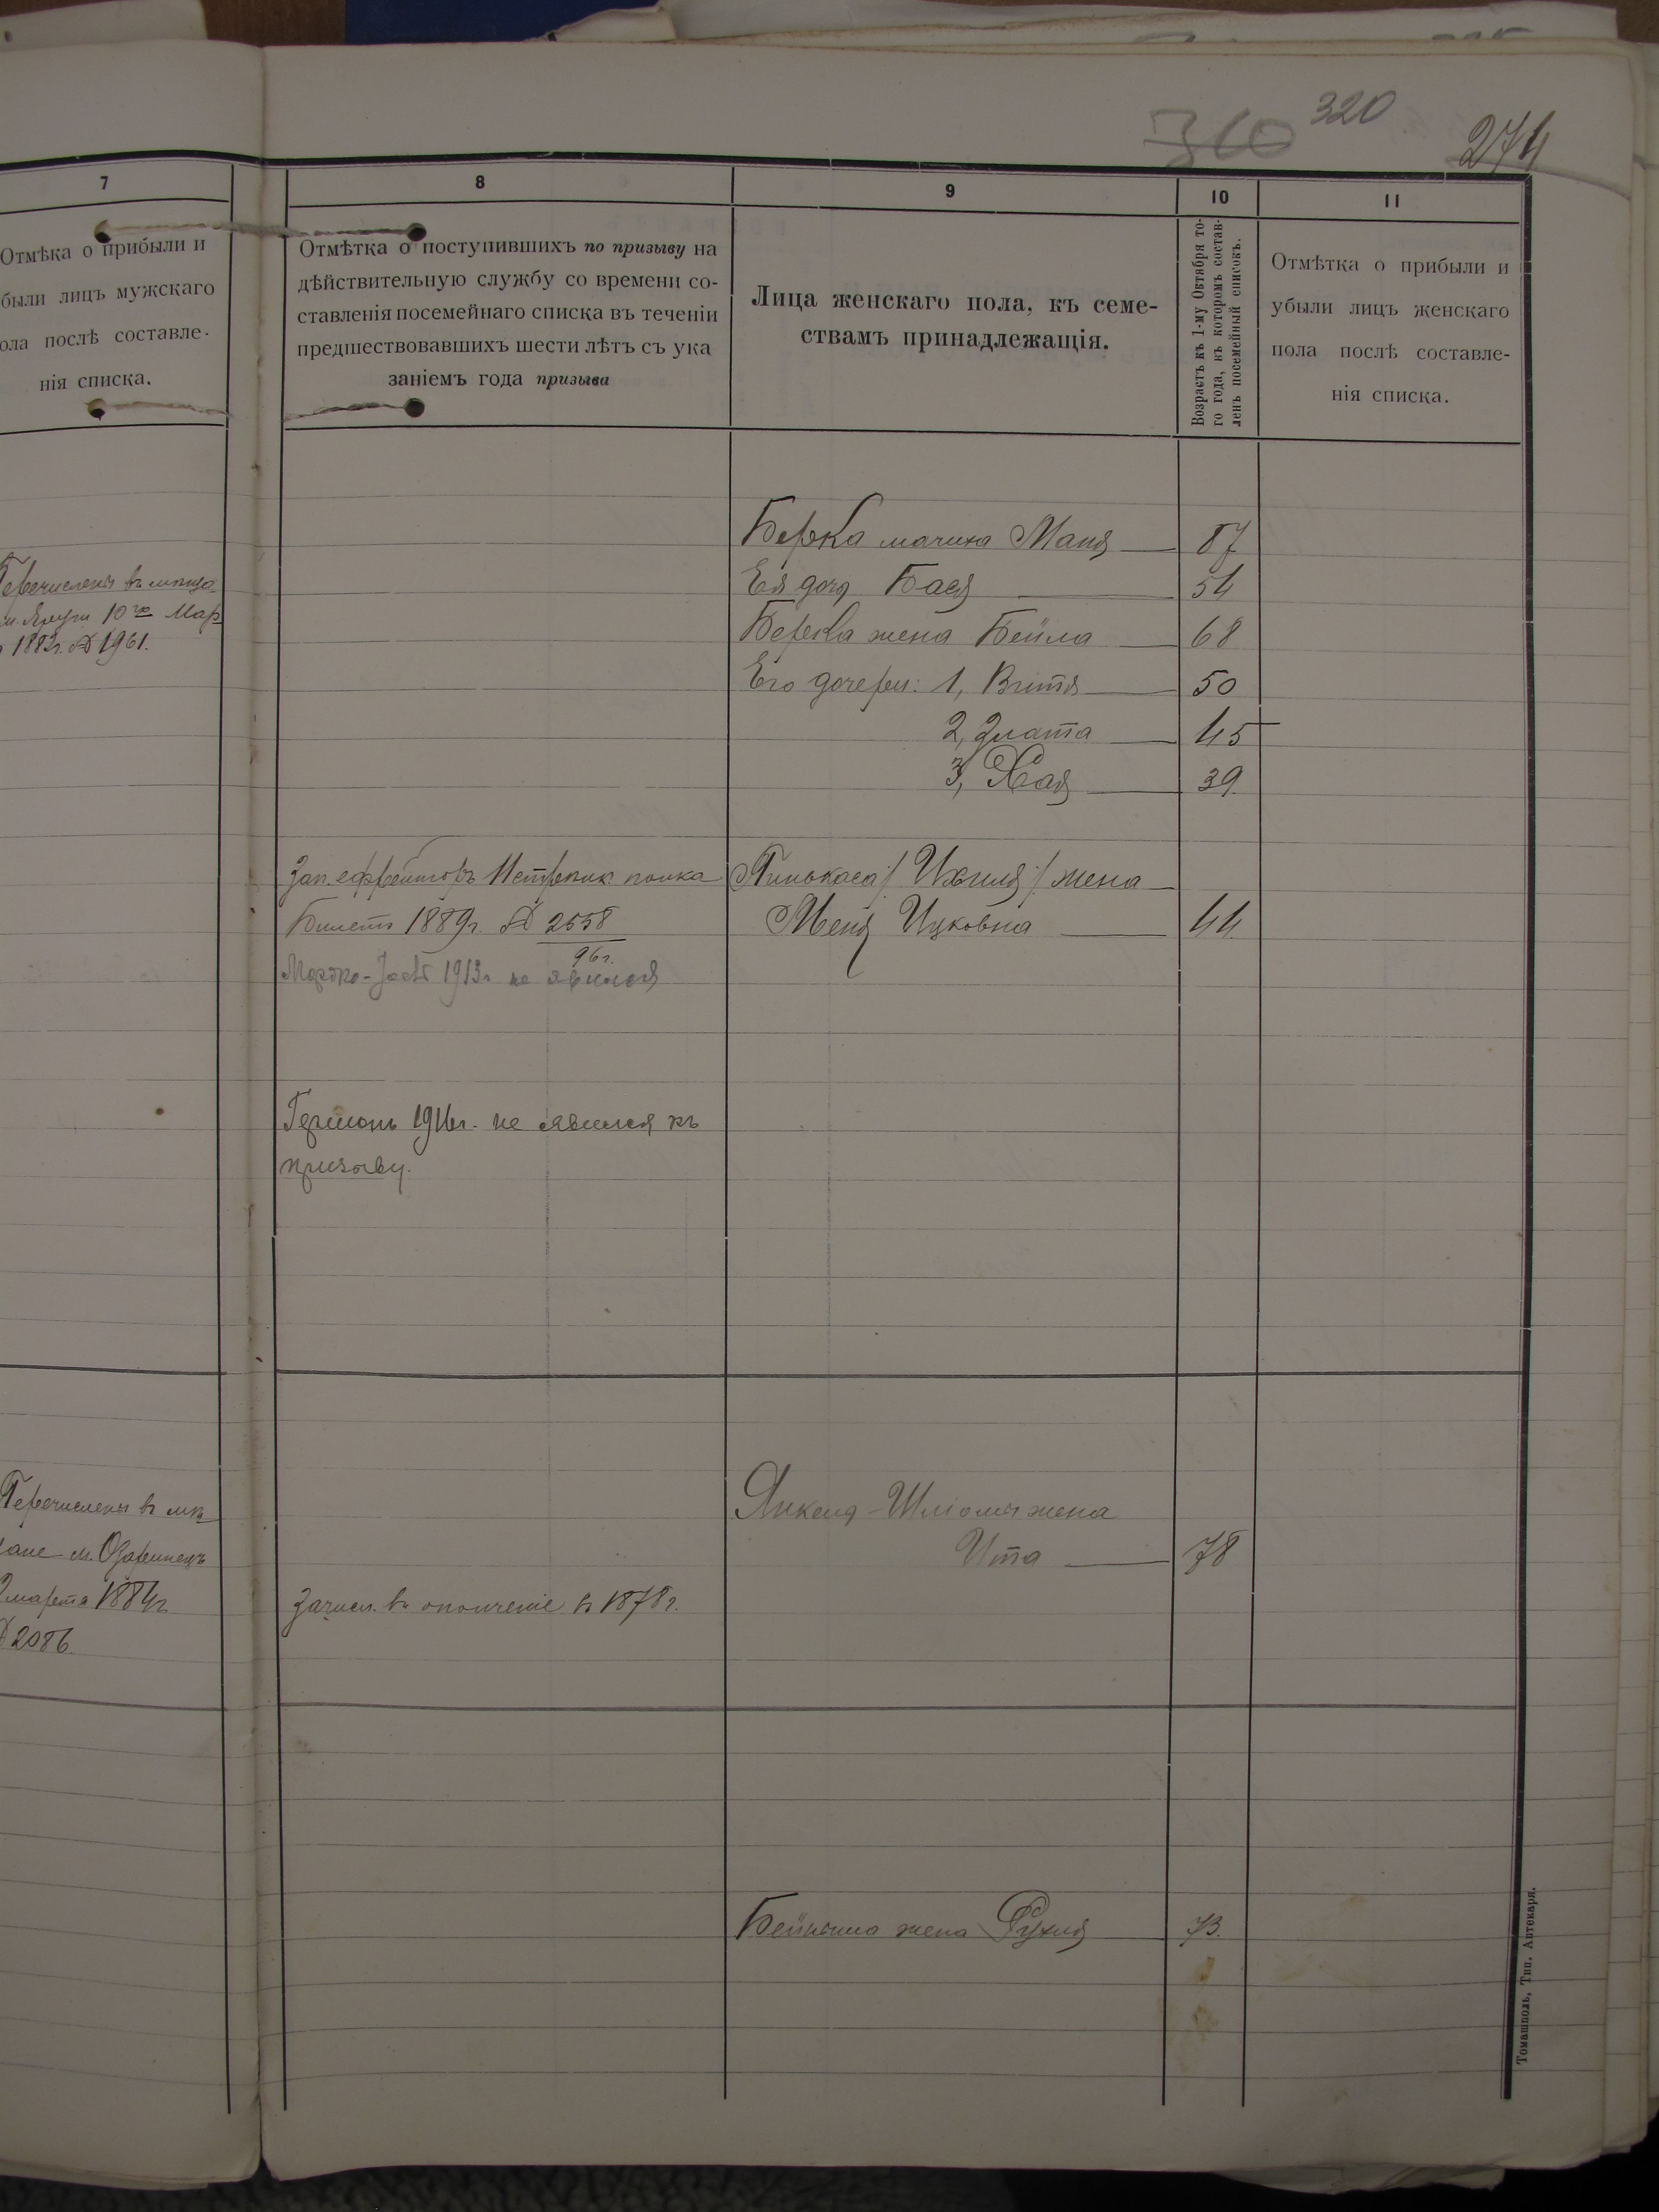 310 320 274
7
Отмѣка о прибыли и
были лицъ мужскаго
ола послѣ составле-
нія списка.
8
Отмѣтка о поступившихъ по призыву на
дѣйствительную службу со времени со-
ставленія посемейнаго списка въ теченіи
предшествовавшихъ шести лѣтъ съ ука
заніемъ года призыва
9
Лица женскаго пола, къ семе-
ствамъ принадлежащія.
10
Возрастъ къ 1-му Октября то-
го года, къ которомъ состав-
ленъ посемейный списокъ.
11
Отмѣтка о прибыли и
убыли лицъ женскаго
пола послѣ составле-
нія списка.
Перечислены въ
10го Мар
1882г. № 1961.
Берка мачиха Маня 87
Ея дочь Бася 54
Берка жена Бейла 68
Его дочери: 1, Витя 50
2, Злата 45
3, Хая 39
Зап. ефрейторъ полка
Билетъ 1889г. № 2558
96г.
1913г. не явился
Пинькаса /Ихиля/ жена
Меня Ицковна 44
Гершонъ 1916г. не явился къ
призыву.
Перечислены въ мѣ
ане м. Озаринецъ
марта 1884г.
№ 2086.
Зачисл. въ ополченіе въ 1878г.
Янкель-Шліомы жена
Ита 78
жена Рухля 73.
Томашполь, Тип. Аптекаря.